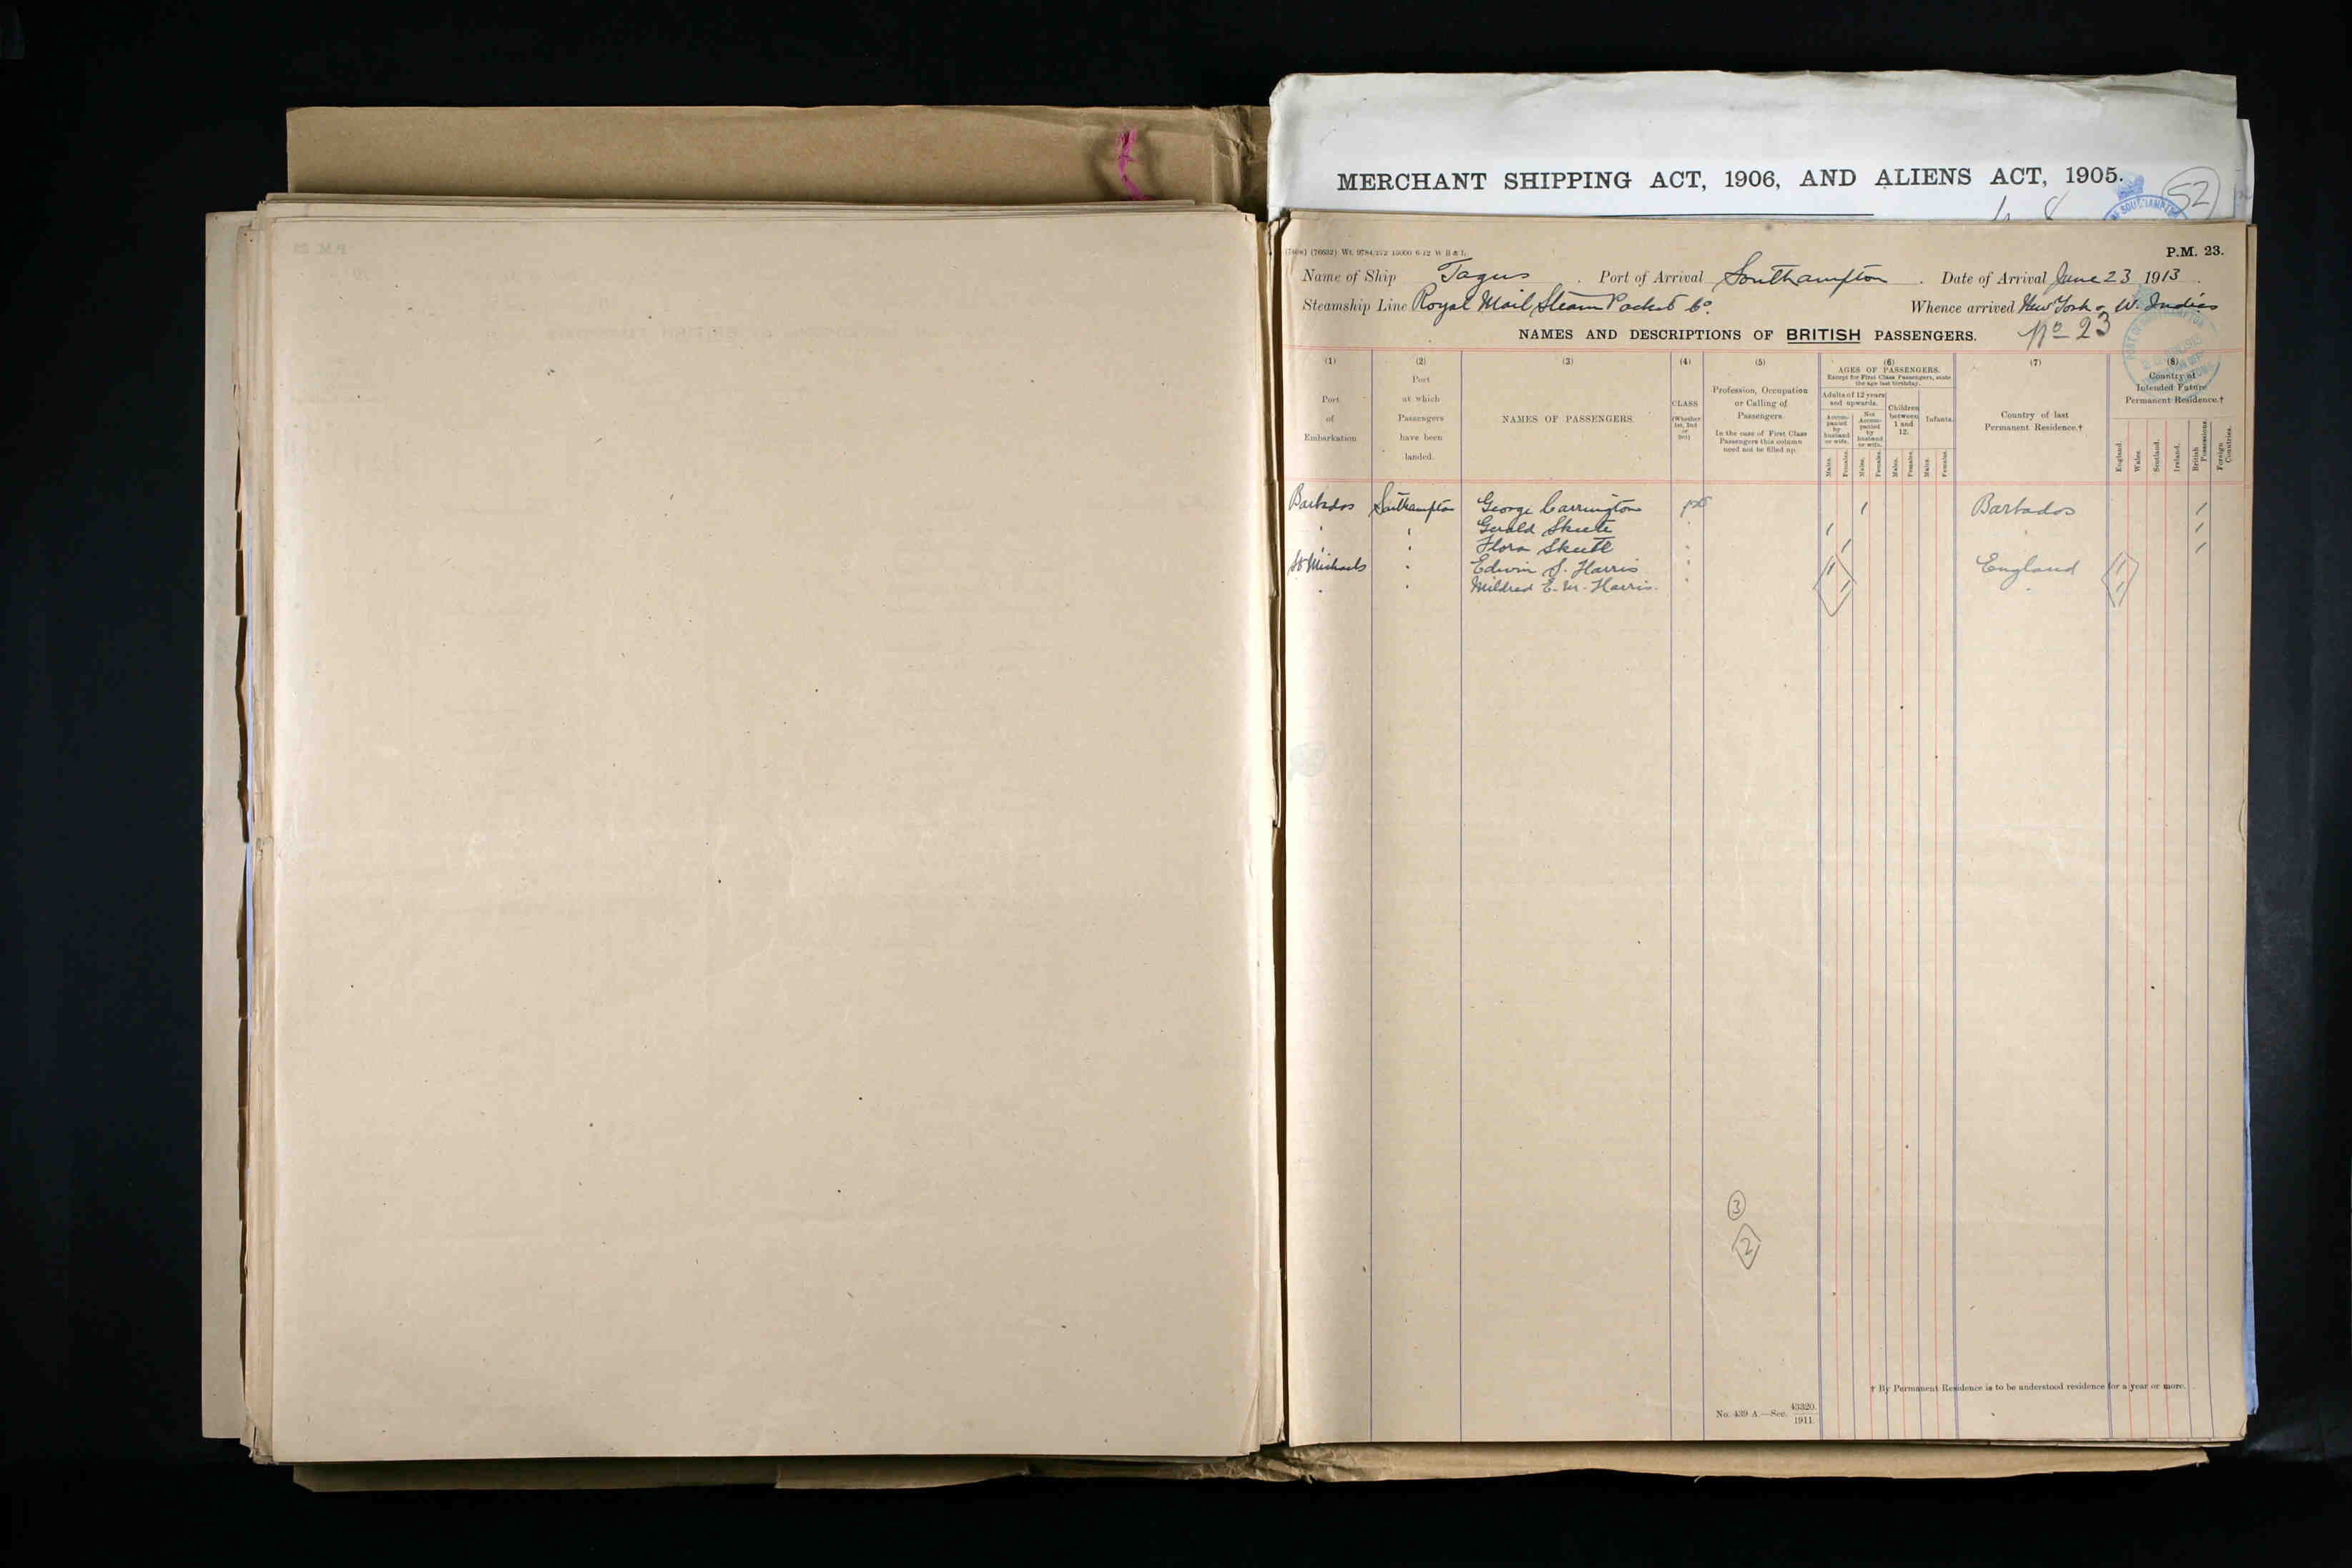 MERCHANT SHIPPING ACT, 1906, AND ALIENS ACT, 1905.
52
(76532) Wt. 9784/272 15000 6-12 W B & L
P.M. 23.
Name of Ship Tagus. Port of Arrival Southampton. Date of Arrival June 23 1913.
Steamship Line Royal Mail Steam Packet Co. Whence arrived New York & W. Indies
No 23
NAMES AND DESCRIPTIONS OF BRITISH PASSENGERS.
(1) (2) (3) (4) (5) (6) (7) (8)
Port of Embarkation
Port at which Passengers have been landed.
NAMES OF PASSENGERS.
CLASS (Whether 1st, 2nd or 3rd)
Profession, Occupation or Calling of Passengers.
In the case of First Class Passengers this column need not be filled up.
AGES OF PASSENGERS.
Except for First Class Passengers, state the age last birthday.
Adults of 12 years and upwards.
Accompanied by husband or wife.
Not Accompanied by husband or wife.
Children between 1 and 12.
Infants.
Males. Females. Males. Females. Males. Females. Males. Females.
Country of last Permanent Residence.†
Country of Intended Future Permanent Residence.†
England. Wales. Scotland. Ireland. British Possessions. Foreign Countries.
Barbados Southampton George Carrington 1st / Barbados /
" " Gerald Skeete " / /
" " Flora Skeete " / /
St Michaels " Edwin J. Harris " / England /
" " Mildred E. M. Harris. " / " /
3
2
† By Permanent Residence is to be understood residence for a year or more.
No. 439 A.—Sec. 43320.
1911.